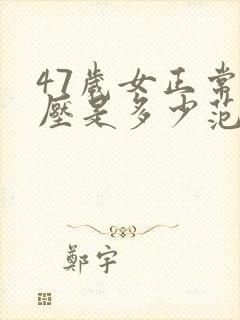 47歲女正常
壓是多少范
鄭宇